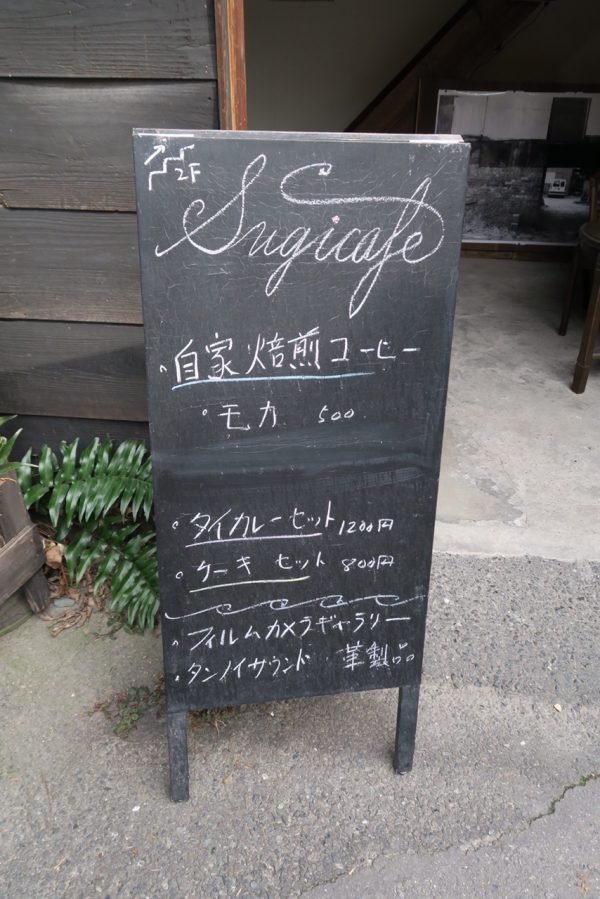 2F
Sugicafe
・自家焙煎コーヒー
・モカ 500
・タイカレーセット 1200円
・ケーキセット 800円
・フィルムカメラギャラリー
・タンノイサウンド ・革製品